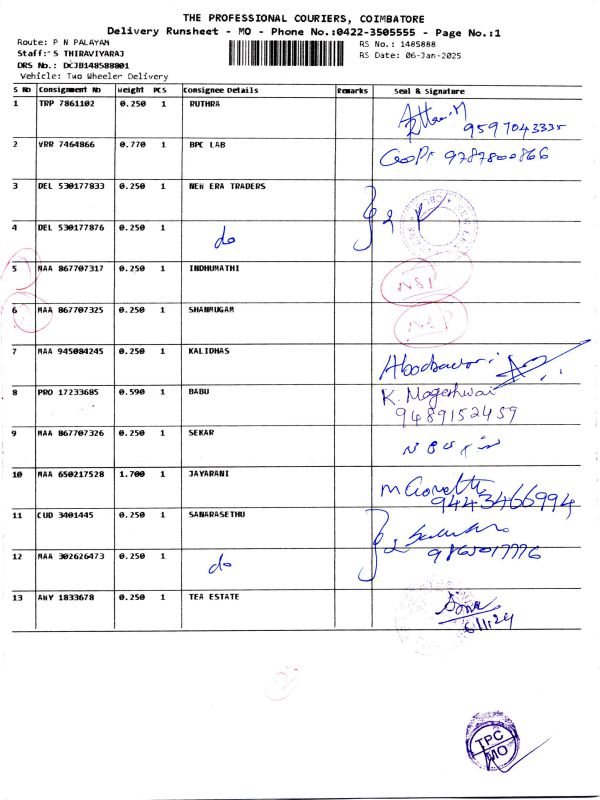 THE PROFESSIONAL COURIERS, COIMBATORE
Delivery Runsheet - MO - Phone No.:0422-3505555 - Page No.:1
Route: P N PALAYAM
RS No.: 1485888
Staff: S THIRAVIYARAJ
RS Date: 06-Jan-2025
DRS No.: DCJB148588801
Vehicle: Two Wheeler Delivery
S No Consignment No Weight PCS Consignee Details Remarks Seal & Signature
1 TRP 7861102 0.250 1 RUTHRA
9597043335
2 VRR 7464866 0.770 1 BPC LAB GoPi 9787800866
3 DEL 530177833 0.250 1 NEW ERA TRADERS
4 DEL 530177876 0.250 1 do
5 MAA 867707317 0.250 1 INDHUMATHI
6 MAA 867707325 0.250 1 SHANMUGAM
7 MAA 945084245 0.250 1 KALIDHAS
8 PRO 17233685 0.590 1 BABU K. Mogeshwai
9489152459
9 MAA 867707326 0.250 1 SEKAR
10 MAA 650217528 1.700 1 JAYARANI
9443466994
11 CUD 3401445 0.250 1 SANARASETHU
12 MAA 302626473 0.250 1 do
13 AWY 1833678 0.250 1 TEA ESTATE
6/1/24
TPC
MO